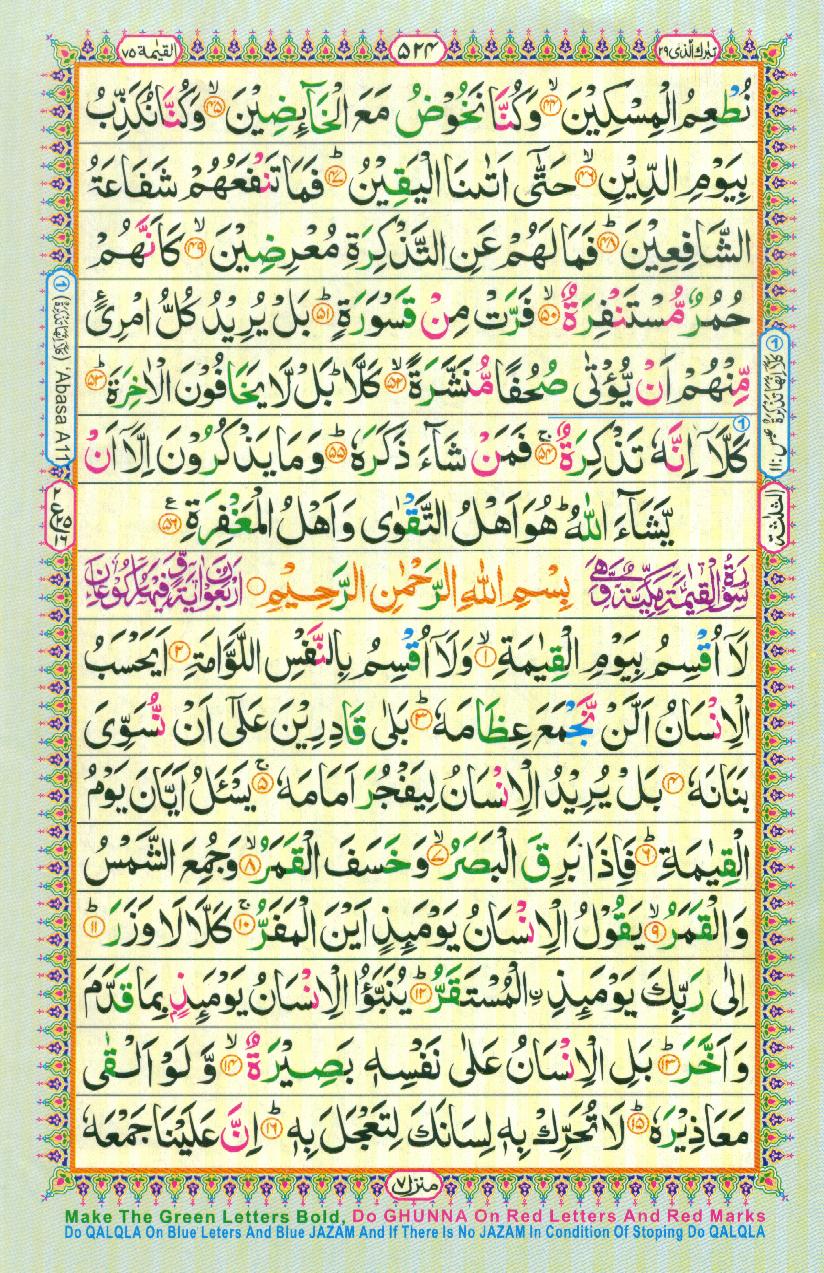 تبٰرك الّذى ٢٩
٥٢٤
القيٰمة ٧٥
نُطْعِمُ الْمِسْكِيْنَ ۙ﴿۴۴﴾ وَكُنَّا نَخُوْضُ مَعَ الْخَآئِضِيْنَ ۙ﴿۴۵﴾ وَكُنَّا نُكَذِّبُ
بِيَوْمِ الدِّيْنِ ۙ﴿۴۶﴾ حَتّٰٓى اَتٰىنَا الْيَقِيْنُ ؕ﴿۴۷﴾ فَمَا تَنْفَعُهُمْ شَفَاعَةُ
الشَّافِعِيْنَ ؕ﴿۴۸﴾ فَمَا لَهُمْ عَنِ التَّذْكِرَةِ مُعْرِضِيْنَ ۙ﴿۴۹﴾ كَاَنَّهُمْ
حُمُرٌ مُّسْتَنْفِرَةٌ ۙ﴿۵۰﴾ فَرَّتْ مِنْ قَسْوَرَةٍ ؕ﴿۵۱﴾ بَلْ يُرِيْدُ كُلُّ امْرِئٍ
مِّنْهُمْ اَنْ يُّؤْتٰى صُحُفًا مُّنَشَّرَةً ۙ﴿۵۲﴾ كَلَّا ؕ بَلْ لَّا يَخَافُوْنَ الْاٰخِرَةَ ؕ﴿۵۳﴾
كَلَّاۤ اِنَّهٗ تَذْكِرَةٌ ۚ﴿۵۴﴾ فَمَنْ شَآءَ ذَكَرَهٗ ؕ﴿۵۵﴾ وَمَا يَذْكُرُوْنَ اِلَّاۤ اَنْ
يَّشَآءَ اللّٰهُ ؕ هُوَ اَهْلُ التَّقْوٰى وَاَهْلُ الْمَغْفِرَةِ ﴿۵۶﴾ ع
سُوْرَةُ الْقِيٰمَةِ مَكِّيَّةٌ وَّهِىَ بِسْمِ اللّٰهِ الرَّحْمٰنِ الرَّحِيْمِ اَرْبَعُوْنَ اٰيَةً وَّفِيْهَا رُكُوْعَانِ
لَاۤ اُقْسِمُ بِيَوْمِ الْقِيٰمَةِ ۙ﴿۱﴾ وَلَاۤ اُقْسِمُ بِالنَّفْسِ اللَّوَّامَةِ ؕ﴿۲﴾ اَيَحْسَبُ
الْاِنْسَانُ اَلَّنْ نَّجْمَعَ عِظَامَهٗ ؕ﴿۳﴾ بَلٰى قَادِرِيْنَ عَلٰٓى اَنْ نُّسَوِّىَ
بَنَانَهٗ ﴿۴﴾ بَلْ يُرِيْدُ الْاِنْسَانُ لِيَفْجُرَ اَمَامَهٗ ۚ﴿۵﴾ يَسْئَلُ اَيَّانَ يَوْمُ
الْقِيٰمَةِ ؕ﴿۶﴾ فَاِذَا بَرِقَ الْبَصَرُ ۙ﴿۷﴾ وَخَسَفَ الْقَمَرُ ۙ﴿۸﴾ وَجُمِعَ الشَّمْسُ
وَالْقَمَرُ ۙ﴿۹﴾ يَقُوْلُ الْاِنْسَانُ يَوْمَئِذٍ اَيْنَ الْمَفَرُّ ۚ﴿۱۰﴾ كَلَّا لَا وَزَرَ ؕ﴿۱۱﴾
اِلٰى رَبِّكَ يَوْمَئِذِ ۟الْمُسْتَقَرُّ ؕ﴿۱۲﴾ يُنَبَّؤُا الْاِنْسَانُ يَوْمَئِذٍۭ بِمَا قَدَّمَ
وَاَخَّرَ ؕ﴿۱۳﴾ بَلِ الْاِنْسَانُ عَلٰى نَفْسِهٖ بَصِيْرَةٌ ۙ﴿۱۴﴾ وَّلَوْ اَلْقٰى
مَعَاذِيْرَهٗ ؕ﴿۱۵﴾ لَا تُحَرِّكْ بِهٖ لِسَانَكَ لِتَعْجَلَ بِهٖ ؕ﴿۱۶﴾ اِنَّ عَلَيْنَا جَمْعَهٗ
منزل ٧
'Abasa A 11
الثلثة
Make The Green Letters Bold, Do GHUNNA On Red Letters And Red Marks
Do QALQLA On Blue Leters And Blue JAZAM And If There Is No JAZAM In Condition Of Stoping Do QALQLA